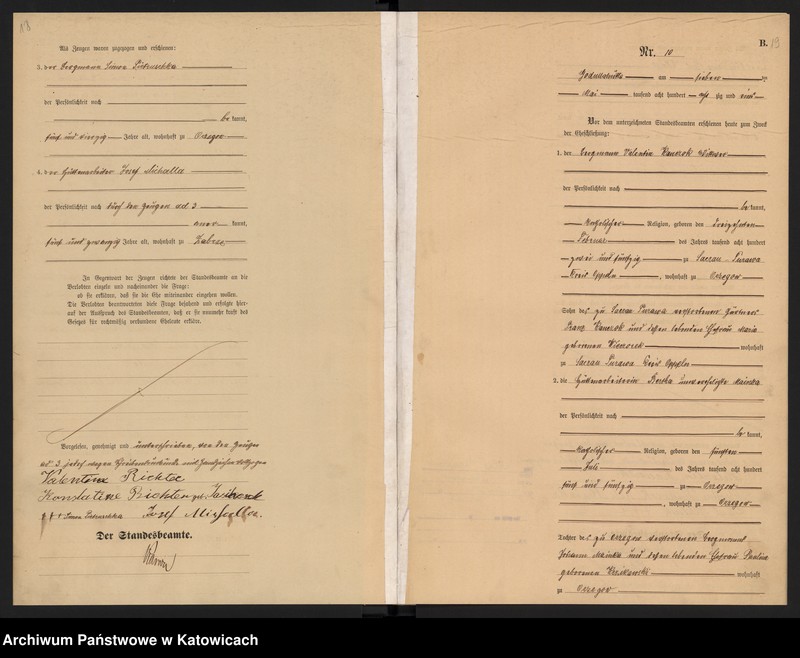 18
Als Zeugen waren zugezogen und erschienen:
3. der Bergmann Simon Pietruschka
der Persönlichkeit nach
be kannt,
fünf und vierzig Jahre alt, wohnhaft zu Orzegow
4. der Hüttenarbeiter Josef Michalla
der Persönlichkeit nach durch den Zeugen ad 3
aner kannt,
fünf und zwanzig Jahre alt, wohnhaft zu Zabrze
In Gegenwart der Zeugen richtete der Standesbeamte an die
Verlobten einzeln und nacheinander die Frage:
ob sie erklären, daß sie die Ehe miteinander eingehen wollen.
Die Verlobten beantworteten diese Frage bejahend und erfolgte hier-
auf der Ausspruch des Standesbeamten, daß er sie nunmehr kraft des
Gesetzes für rechtmäßig verbundene Eheleute erkläre.
Vorgelesen, genehmigt und unterschrieben, von dem Zeugen
ad 3 jedoch wegen Schreibensunkunde mit Handzeichen vollzogen
Valentin Richter
Konstatine Richter geb.
+++ Simon Pietruschka Josef Michalla.
Der Standesbeamte.
B.
19
Nr. 10
Godullahütte am sieben ten
Mai tausend acht hundert acht zig und eins
Vor dem unterzeichneten Standesbeamten erschienen heute zum Zweck
der Eheschließung:
1. der Bergmann Valentin Wittwer
der Persönlichkeit nach
be kannt,
katholischer Religion, geboren den dreizehnten
Februar des Jahres tausend acht hundert
zwei und fünfzig zu Sacrau Turawa
Kreis Oppeln, wohnhaft zu Orzegow
Sohn des zu Sacrau Turawa verstorbenen Gärtners
Franz und dessen lebenden Ehefrau Maria
geborenen Wieczorek wohnhaft
zu Sacrau Turawa Kreis Oppeln
2. die Hüttenarbeiterin Bertha unverehelichte Mainka
der Persönlichkeit nach
be kannt,
katholischer Religion, geboren den fünften
Juli des Jahres tausend acht hundert
fünf und fünfzig zu Orzegow
, wohnhaft zu Orzegow
Tochter des zu Orzegow verstorbenen Bergmanns
Johann Mainka und dessen lebenden Ehefrau Paulina
geborenen wohnhaft
zu Orzegow
Archiwum Państwowe w Katowicach